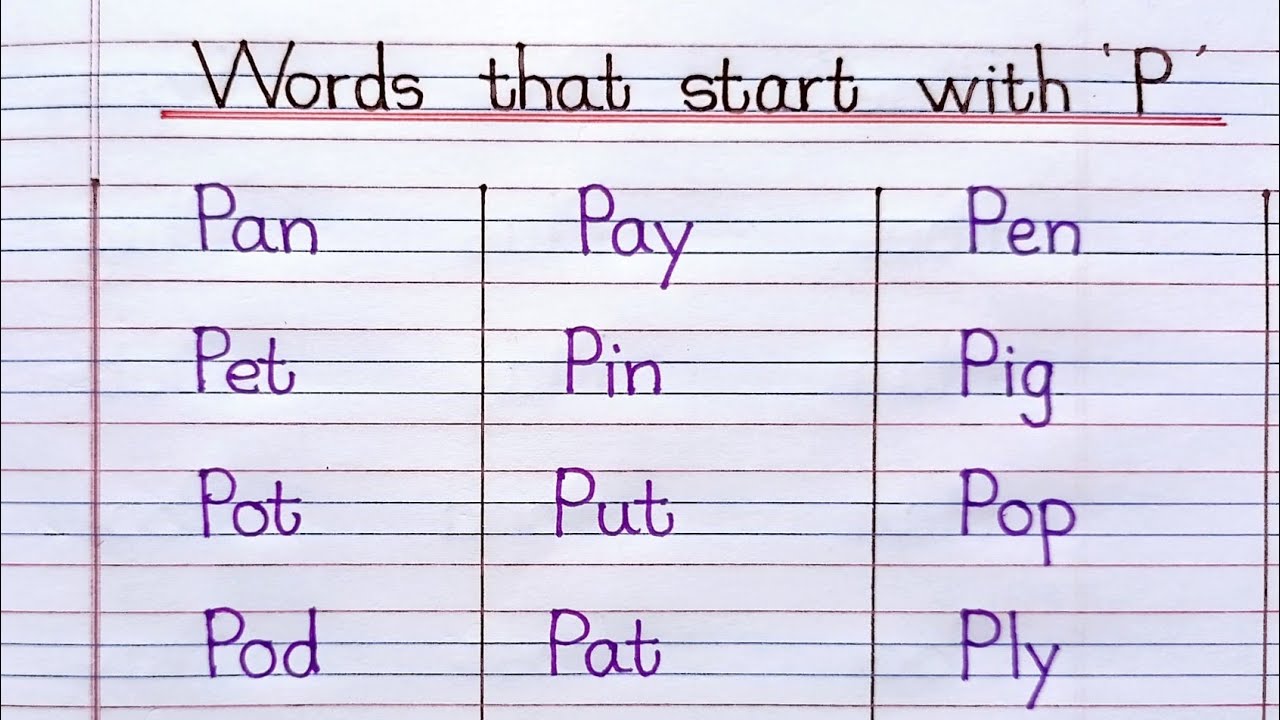 Words that start with 'P'
Pan Pay Pen
Pet Pin Pig
Pot Put Pop
Pod Pat Ply